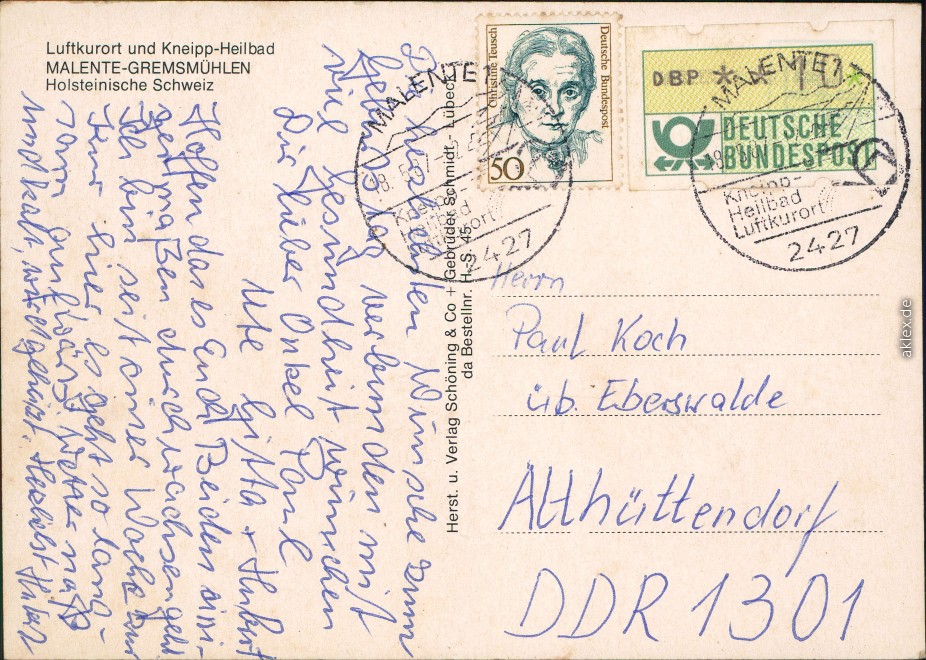 Luftkurort und Kneipp-Heilbad
MALENTE-GREMSMÜHLEN
Holsteinische Schweiz
Die herzlichsten Wünsche zum
Geburtstag verbunden mit
viel Gesundheit wünschen
Dir lieber Onkel Paul
Ute Gitta + Hubert
Hoffen das es Euch Beiden eini-
germaßen durchwachsen geht
Ich bin seit einer Woche zur
Kur hier es geht so lang-
sam aufwärts Wetter naß
und kalt, wird geheizt. Herzlichst Hubert
Herst. u. Verlag Schöning & Co + Gebrüder Schmidt - Lübeck
da Bestellnr. H.-S. 45
Christine Teusch
Deutsche Bundespost
50
DBP
DEUTSCHE
BUNDESPOST
MALENTE 1
Kneipp-
Heilbad
Luftkurort
2427
MALENTE 1
Kneipp-
Heilbad
Luftkurort
2427
Herrn
Paul Koch
üb. Eberswalde
Althüttendorf
DDR 1301
aklex.de